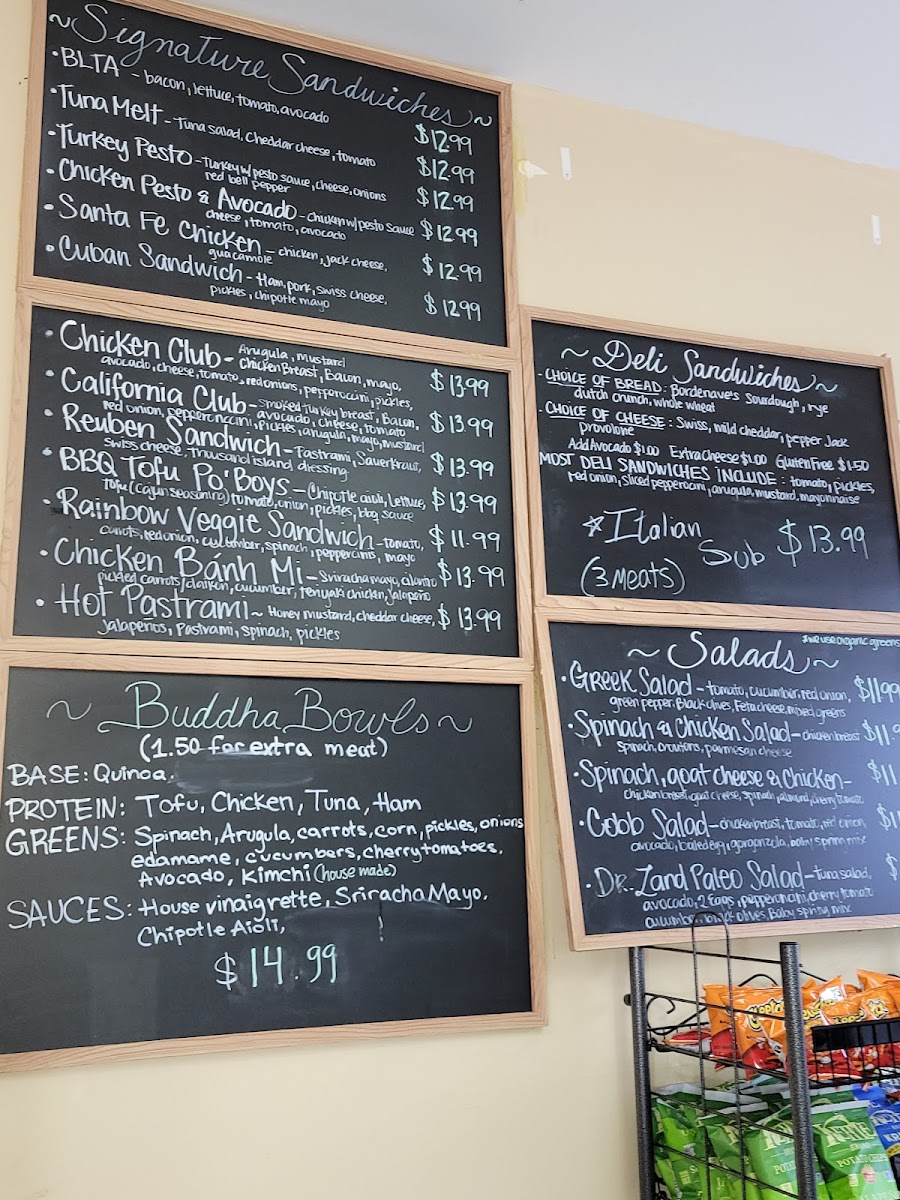 ~Signature Sandwiches~
•BLTA - bacon, lettuce, tomato, avocado $12.99
•Tuna Melt - Tuna salad, Cheddar cheese, tomato $12.99
•Turkey Pesto - Turkey w/ pesto sauce, cheese, onions $12.99
red bell pepper
•Chicken Pesto & Avocado - chicken w/ pesto sauce $12.99
cheese, tomato, avocado
•Santa Fe Chicken - chicken, jack cheese, $12.99
guacamole
•Cuban Sandwich - Ham, pork, swiss cheese, $12.99
pickles, chipotle mayo
•Chicken Club - Arugula, mustard
chicken Breast, Bacon, mayo, $13.99
avocado, cheese, tomato, red onions, pepperoccini, pickles,
•California Club - smoked turkey breast, Bacon, $13.99
avocado, cheese, tomato
red onion, pepperoncini, pickles, arugula, mayo, mustard
•Reuben Sandwich - Pastrami, Sauerkraut, $13.99
swiss cheese, thousand island dressing
•BBQ Tofu Po'Boys - Chipotle aioli, lettuce, $13.99
Tofu (cajun seasoning) tomato, onion, pickles, bbq sauce
•Rainbow Veggie Sandwich - tomato, $11.99
carrots, red onion, cucumber, spinach, pepperoncinis, mayo
•Chicken Bánh Mi - Sriracha mayo, cilantro $13.99
pickled carrots/daikon, cucumber, teriyaki chicken, jalapeño
•Hot Pastrami ~ Honey mustard, cheddar cheese, $13.99
Jalapeños, Pastrami, spinach, pickles
~Buddha Bowls~
(1.50 for extra meat)
BASE: Quinoa,
PROTEIN: Tofu, Chicken, Tuna, Ham
GREENS: Spinach, Arugula, carrots, corn, pickles, onions
edamame, cucumbers, cherry tomatoes,
Avocado, Kimchi (house made)
SAUCES: House vinaigrette, Sriracha Mayo,
Chipotle Aioli,
$14.99
~Deli Sandwiches~
-CHOICE OF BREAD: Bordenave's Sourdough, rye
dutch crunch, whole wheat
-CHOICE OF CHEESE: Swiss, mild cheddar, pepper Jack
provolone
Add Avocado $1.00 Extra Cheese $1.00 Gluten Free $1.50
MOST DELI SANDWICHES INCLUDE: tomato, pickles,
red onion, sliced pepperocini, arugula, mustard, mayonnaise
☆Italian Sub $13.99
(3 meats)
*we use organic greens
~Salads~
•Greek Salad - tomato, cucumber, red onion, $11.99
green pepper, Black olives, Feta cheese, mixed greens
•Spinach & Chicken Salad - chicken breast $11.9
spinach, croutons, parmesan cheese
•Spinach, goat cheese & Chicken - $11
chicken breast, goat cheese, spinach, almond, cherry tomato
•Cobb Salad - chicken breast, tomato, red onion, $1
avocado, boiled egg, gorgonzola, baby spring mix
•Dr. Zand Paleo Salad - Tuna salad, $
avocado, 2 Eggs, pepperoncini, cherry tomato
cucumber, black olives, Baby spring mix
Cheetos
Kettle
POTATO CHIPS